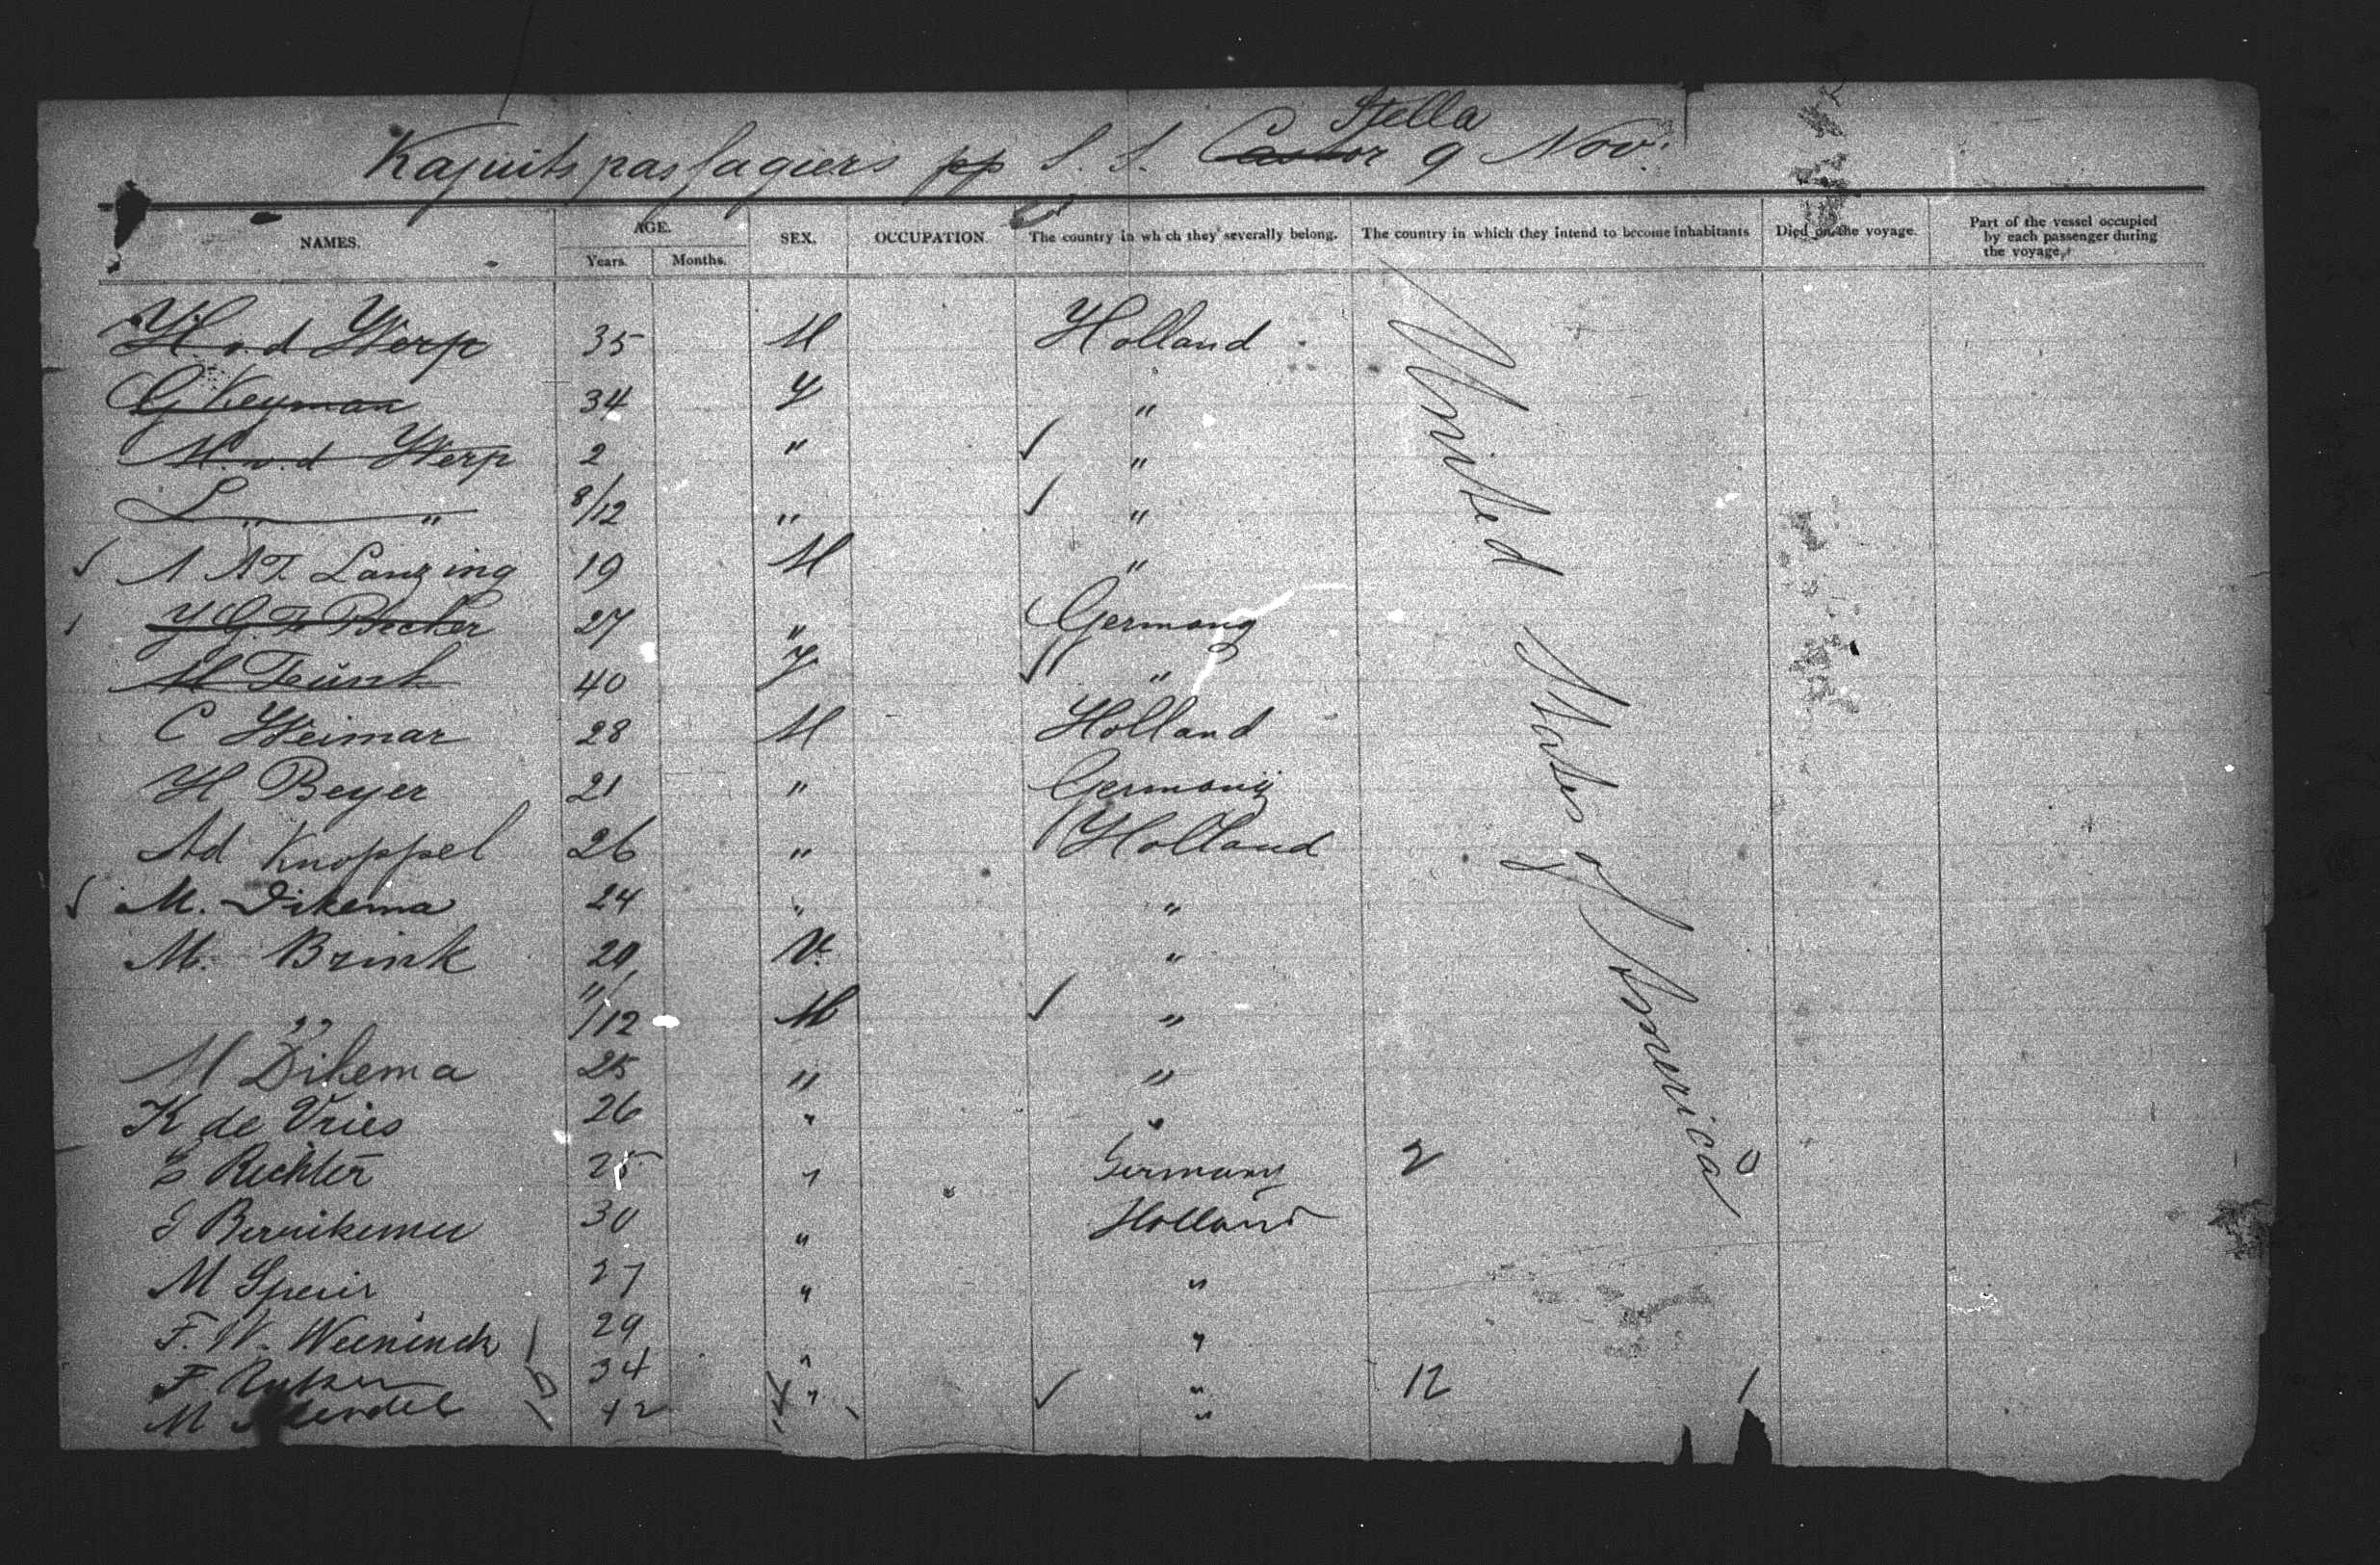 Stella
Kajuitspassagiers pp S. S. Castor 9 Nov.
NAMES. AGE. SEX. OCCUPATION. The country in wh ch they severally belong. The country in which they intend to become inhabitants Died on the voyage. Part of the vessel occupied by each passenger during the voyage.
Years. Months.
H. v. d Werp 35 M Holland
G Keyman 34 V "
M. v. d Werp 2 " "
L " " 8/12 " "
A. T. Lanzing 19 M "
Becker 27 " Germany
M 40 V "
C Weimar 28 M Holland
H Beyer 21 " Germany
Ad Knoppel 26 " Holland
M. Dikema 24 " "
M. Brink 20 V. "
" 11/12 M "
M Dikema 25 " "
K de Vries 26 " "
Richter 25 " Germany 2 0
30 " Holland
M 27 " "
F. W. Weeninck 29 " "
F. 34 " " 12 1
M 42 "
United States of America